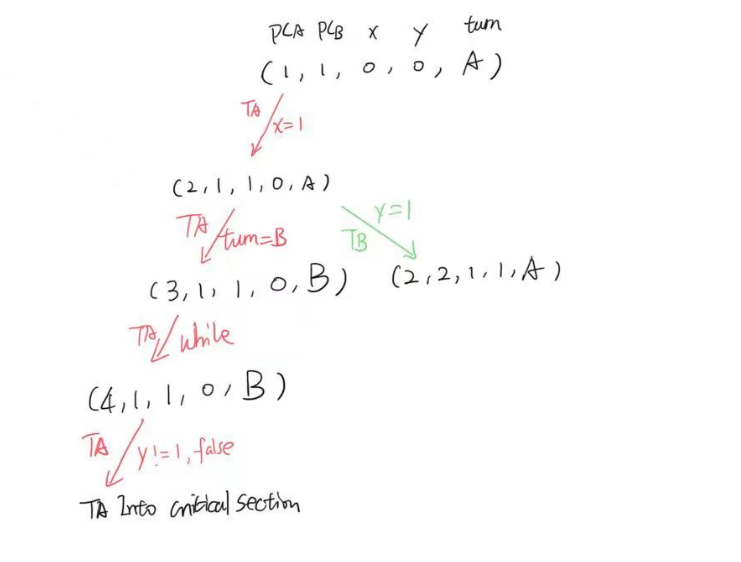 PCA PCB x y turn
(1, 1, 0, 0, A)
TA x=1
(2, 1, 1, 0, A)
TA turn=B
TB y=1
(3, 1, 1, 0, B) (2, 2, 1, 1, A)
TA while
(4, 1, 1, 0, B)
TA y!=1, false
TA Into critical section